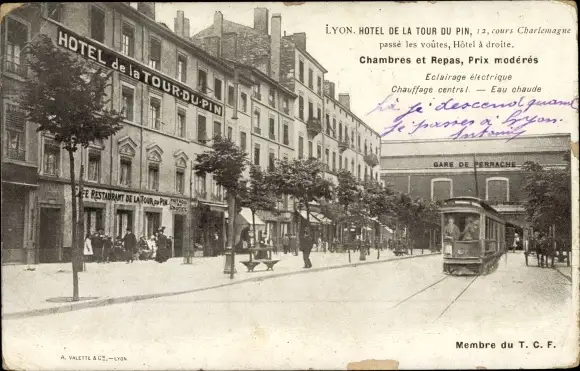 LYON. HOTEL DE LA TOUR DU PIN, 12, cours Charlemagne
passé les voûtes, Hôtel à droite.
Chambres et Repas, Prix modérés
Eclairage électrique
Chauffage central — Eau chaude
là je descend quand
je passe à Lyon
HOTEL de la TOUR-DU-PIN
GARE DE PERRACHE
CAFE RESTAURANT DE LA TOUR-DU-PIN
Membre du T. C. F.
A. VALETTE & Cie, — LYON